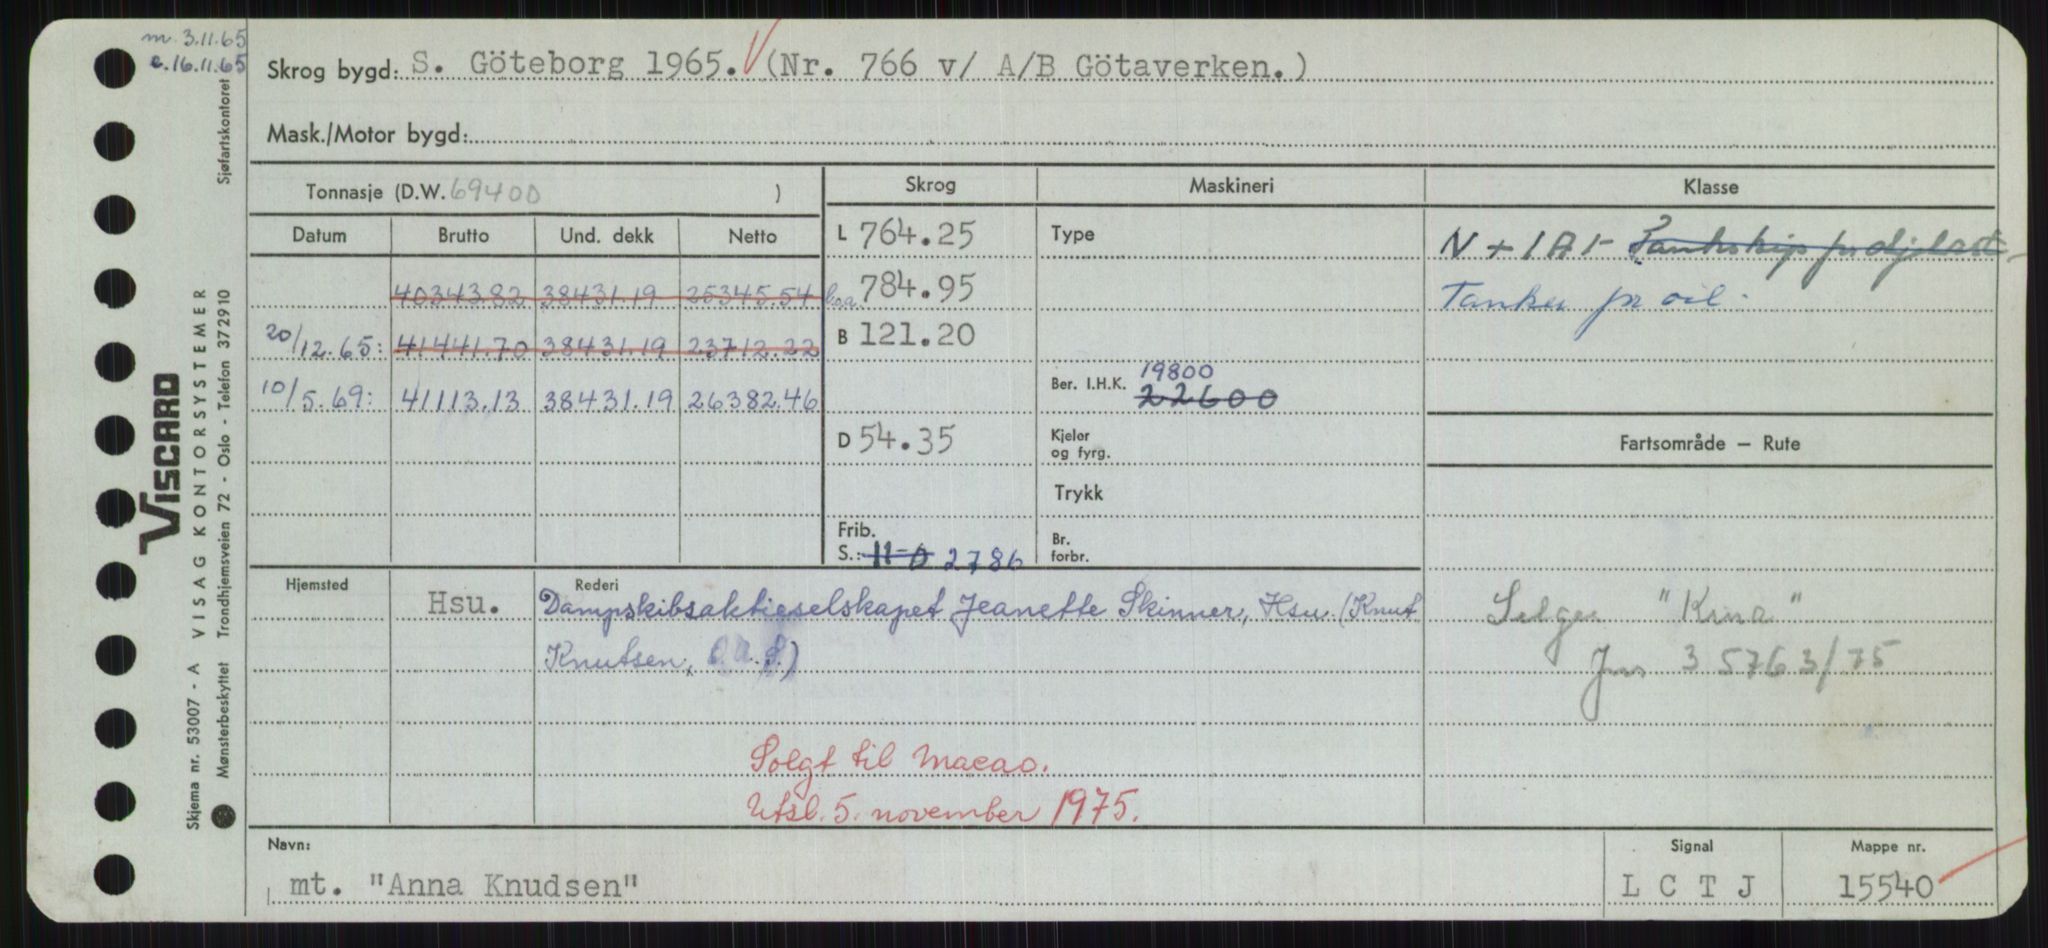 m 3.11.65
e.16.11.65
Skrog bygd: S. Göteborg 1965. (Nr. 766 v/ A/B Götaverken.)
Mask./Motor bygd:
Tonnasje (D.W. 69400 )
Skrog
Maskineri
Klasse
Datum Brutto Und. dekk Netto
40343.82 38431.19 25345.54
20/12.65: 41441.70 38431.19 23712.22
10/5.69: 41113.13 38431.19 26382.46
L 764.25
l.o.a. 784.95
B 121.20
D 54.35
Frib.
S.: 11-0 2786
Type
Ber. I.H.K. 19800
22600
Kjeler
og fyrg.
Trykk
Br.
forbr.
N + 1A1 - Tankskip for oljelast
Tanker for oil.
Fartsområde — Rute
Selges "Kina"
Jnr 35763/75
Hjemsted
Hsu.
Rederi
Dampskibsaktieselskapet Jeanette Skinner, Hsu. (Knut
Knutsen, O.A.S.)
Solgt til Macao.
Utsl. 5. november 1975.
Navn:
mt. "Anna Knudsen"
Signal
L C T J
Mappe nr.
15540
VISCARD
VISAG KONTORSYSTEMER
Sjøfartskontoret
Skjema nr. 53007 - A
Mønsterbeskyttet Trondhjemsveien 72 - Oslo - Telefon 372910